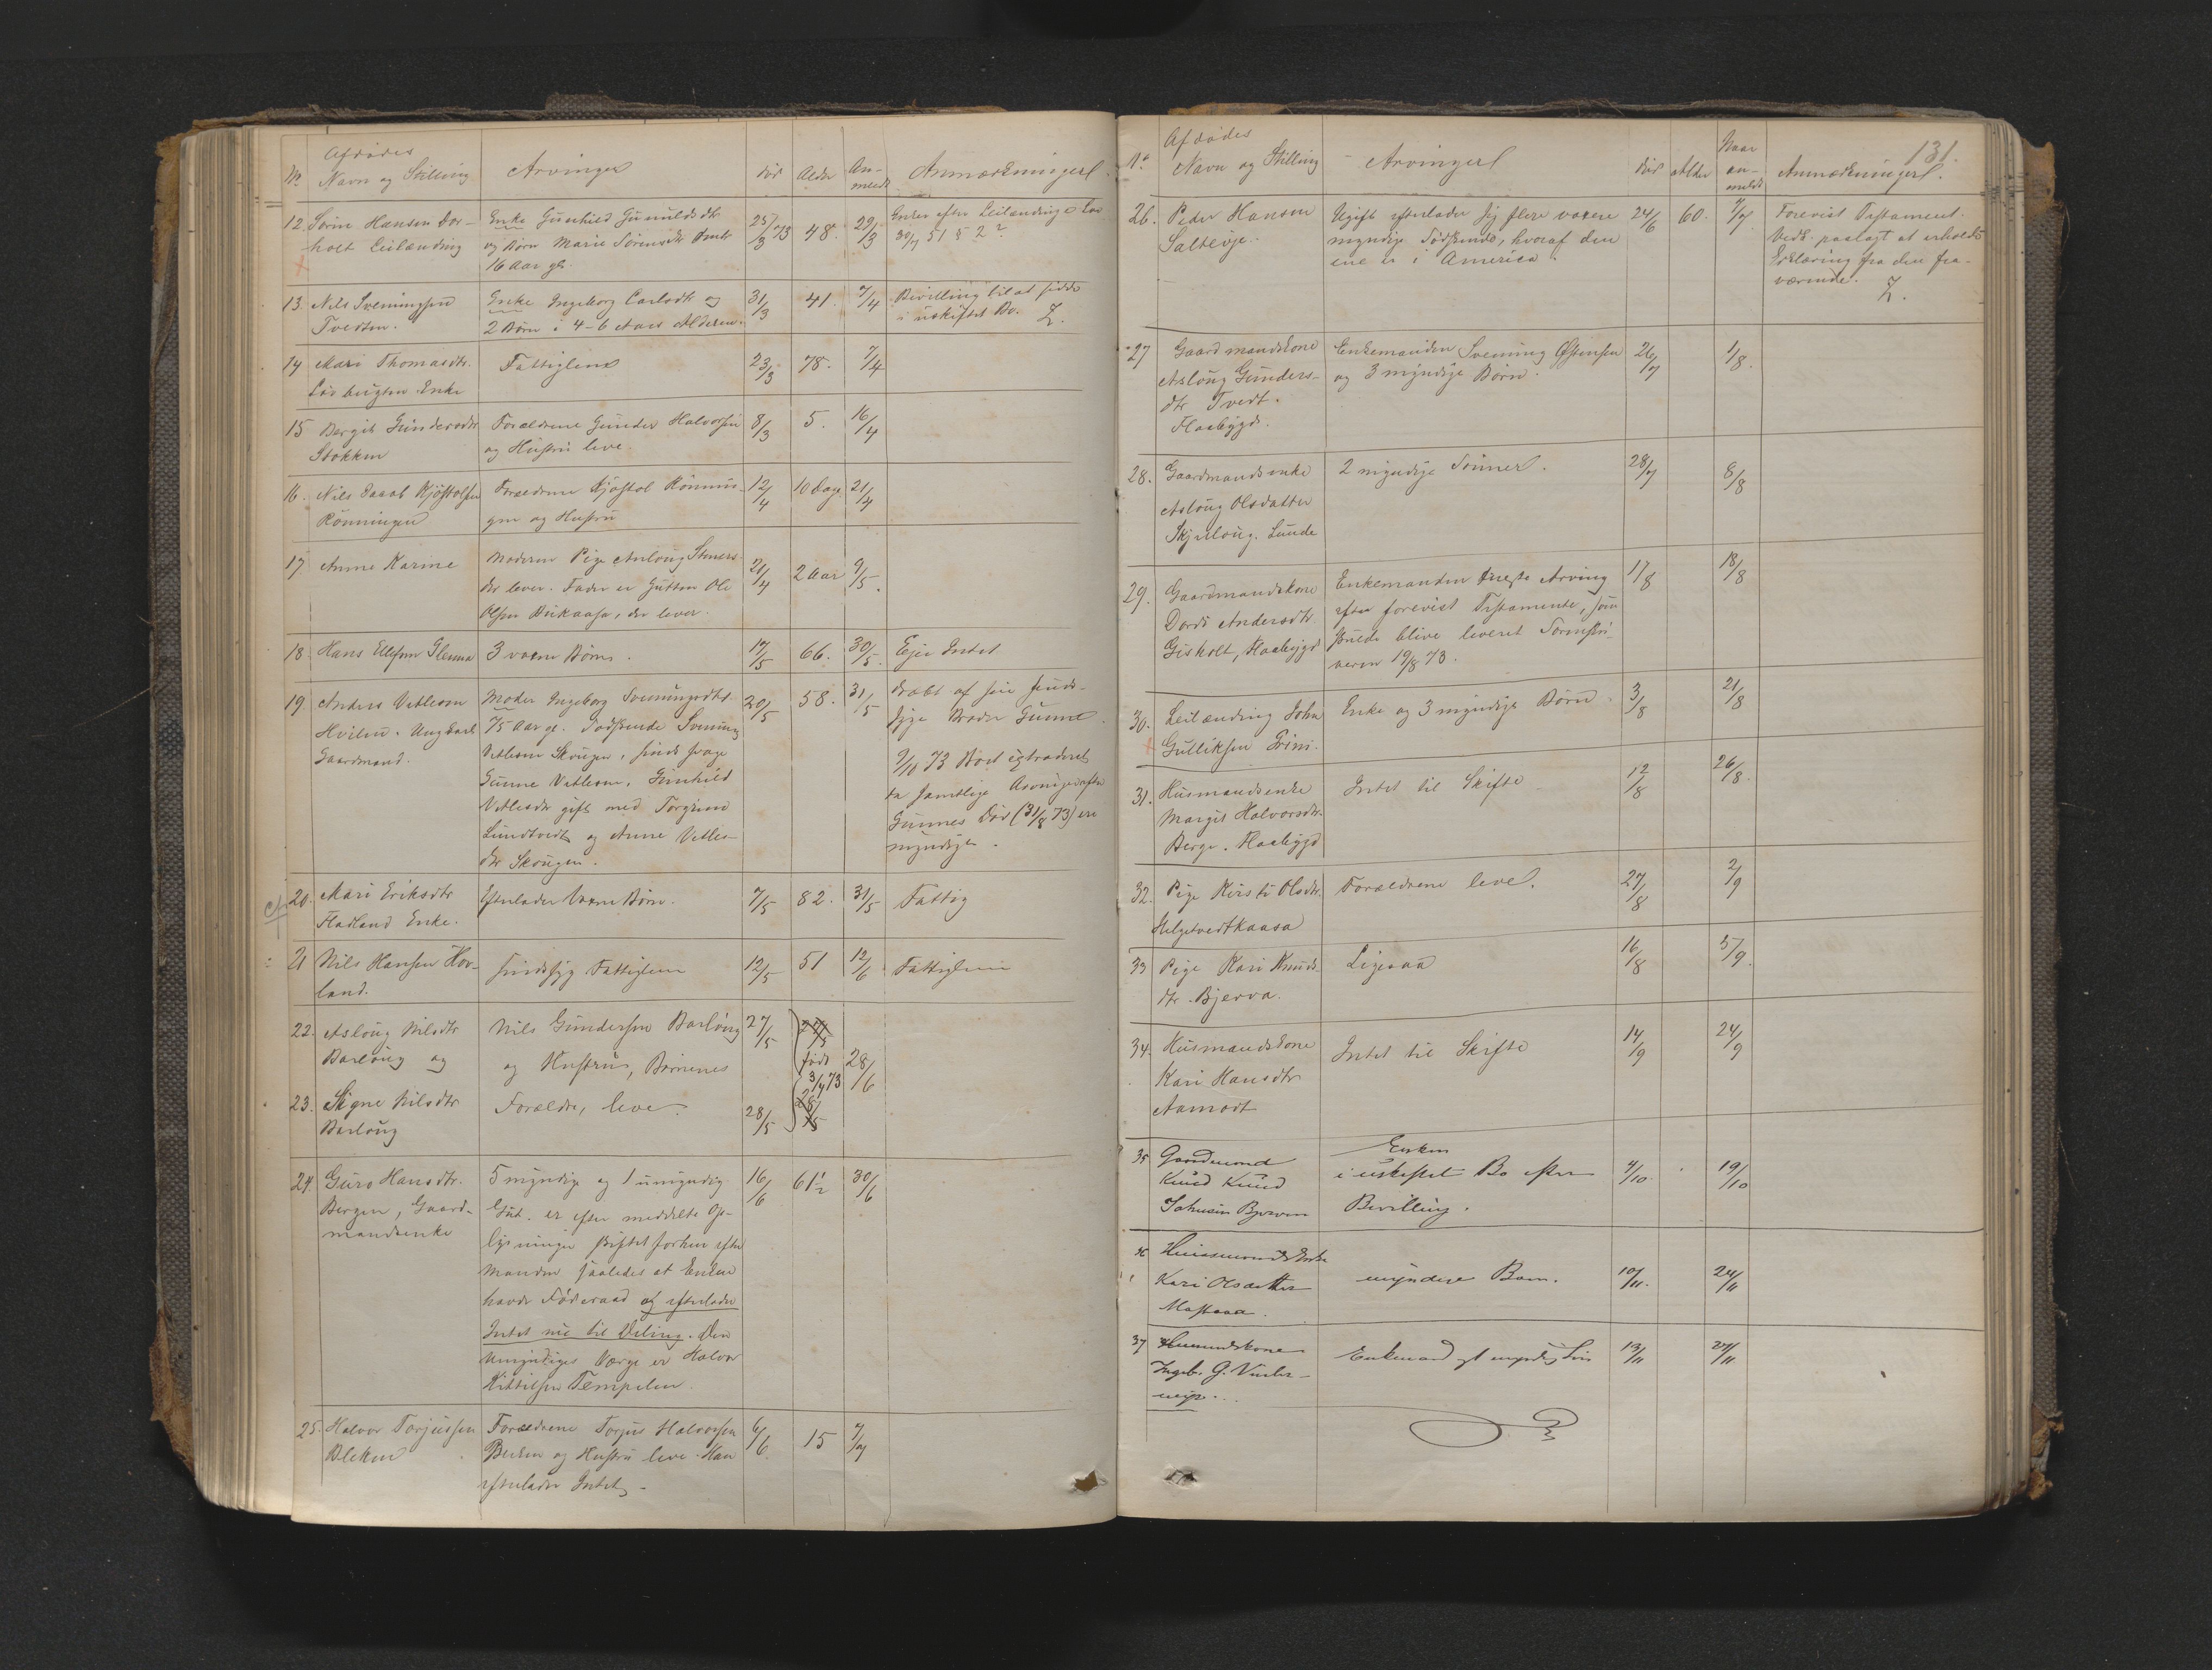 Afdødes
No Navn og Stilling Arvinger død Alder An-
meldt Anmærkninger
12. Sørin Hansen Dor- Enke Gunhild Gunulds dtr 25/3 73 48. 29/3 efter Leilændinge
holt Leilænding og Børn Marie Sørensdtr 30/7 51 § 2?
16 Aar gl.
13. Nils Sveningsen Enke Ingeborg Carlsdtr og 31/3 41. 7/4 Bevilling til at sidde
Tvedten. 2 Børn i 4-6 Aars Alderen. i uskiftet Bo.
14 Mari Thomasdtr. Fattiglem 23/3 78. 7/4
Enke
15 Bergit Gundersdtr Forældrene Gunder Halvorsen 8/3 5. 16/4
Stokken og Hustru leve.
16. Nils Jacob Kjøstolsen Forældrene Kjøstol Rönnin- 12/4 10 Dage 21/4
Rönningen gen og Hustru
17. Anne Karine Moderen Pige Anloug Steners 21/4 2 Aar 9/5.
dtr lever. Fader er Gutten Ole
Olsen, der lever.
18 Hans Ellefsen Glenna 3 voxne Børn. 17/5 66. 30/5. Ejer Intet
19. Anders Vetlesen Moder Ingeborg Sveningsdtr 20/5 58. 31/5 dræbt af sin sinds-
Hvilen. Ungkarl 75 Aar gl. Sødskende Svening syge Broder Gunne.
Gaardmand. Vetlesen Skougen, sinds svage
Gunne Vetlesen, Gunhild 9/10 73 Boet extraderet
Vetlesdtr gift med Torgrim da samtlige Arvinger efter
Lundtvedt og Anne Vetles- Gunnes Død (31/8 73) ere
dtr Skougen. myndige.
20. Mari Eriksdtr Efterlader voxne Børn. 7/5 82. 31/5 Fattig
Fladland Enke.
21 Nils Hansen Hov- sindssyg Fattiglem 12/5 51 12/6 Fattiglem
land.
22. Asloug Nilsdtr Nils Gundersen Barloug 27/5 27/5
Barloug og og Hustru, Børnenes født 28/6
3/4 73
23. Signe Nilsdtr Forældre, leve. 28/5 28/5
Barloug
24. Guro Hansdtr. 5 myndige og 1 umyndig 16/6 61½ 30/6
Bergen, Gaard- Gut. er efter meddelte Op-
mandsenke lysninger skiftet forhen efter
Manden saaledes at Enken
havde Föderaad og efterlader
Intet nu til Deling. Den
Umyndiges Værge er Halvor
Kittilsen Tempelen.
25. Halvor Torjussen Forældrene Torjus Halvorsen 6/6 15 7/7
Bleken Bleken og Hustru leve. Han
efterlader Intet
131.
Afdødes
No Navn og Stilling Arvinger død Alder Naar
an-
meldt Anmærkninger.
26. Peder Hansen Ugift efterlader sig flere voxne 24/6 60. 7/7 Forevist Testament.
Saltböje. myndige Sødskende, hvoraf den Vedk. paalagt at erholde
ene er i America. Erklæring fra den fra-
værende.
27 Gaardmandskone Enkemanden Svening Østensen 26/7 1/8.
Asloug Gunders- og 3 myndige Børn.
dtr Tvedt.
Flaabygd.
28. Gaardmandsenke 2 myndige Sønner. 28/7 8/8
Asloug Olsdatter
Lunde
29. Gaardmandskone Enkemanden eneste Arving 17/8 18/8
Dordi Andersdtr efter forevist Testamente, som
Gisholt, Flaabygd skulde blive leveret Sorenskri-
veren 19/8 73.
30. Leilænding John Enke og 3 myndige Børn 3/8 21/8
Gulliksen Grini.
31. Husmandsenke Intet til Skifte 12/8 26/8.
Margit Halvorsdtr.
Berge. Flaabygd
32. Pige Kirsti Olsdtr. Forældrene leve. 27/8 2/9
Helgetvedtkaasa
33 Pige Kari Knuds- Ligesaa 16/8 5/9.
dtr. Bjerva.
34. Husmandskone Intet til Skifte 14/9 24/9
Kari Hansdtr
Aamodt
35 Gaardmand Enken
Knud Knud i uskiftet Bo efter 4/10. 19/10
Johnsen Bjerven Bevilling.
36 Husmandsenke
Kari Olsdatter myndige Børn. 10/11. 24/11
37 Husmandskone Enkemand og 1 myndig Søn 13/11 27/11
Ingeb. G.